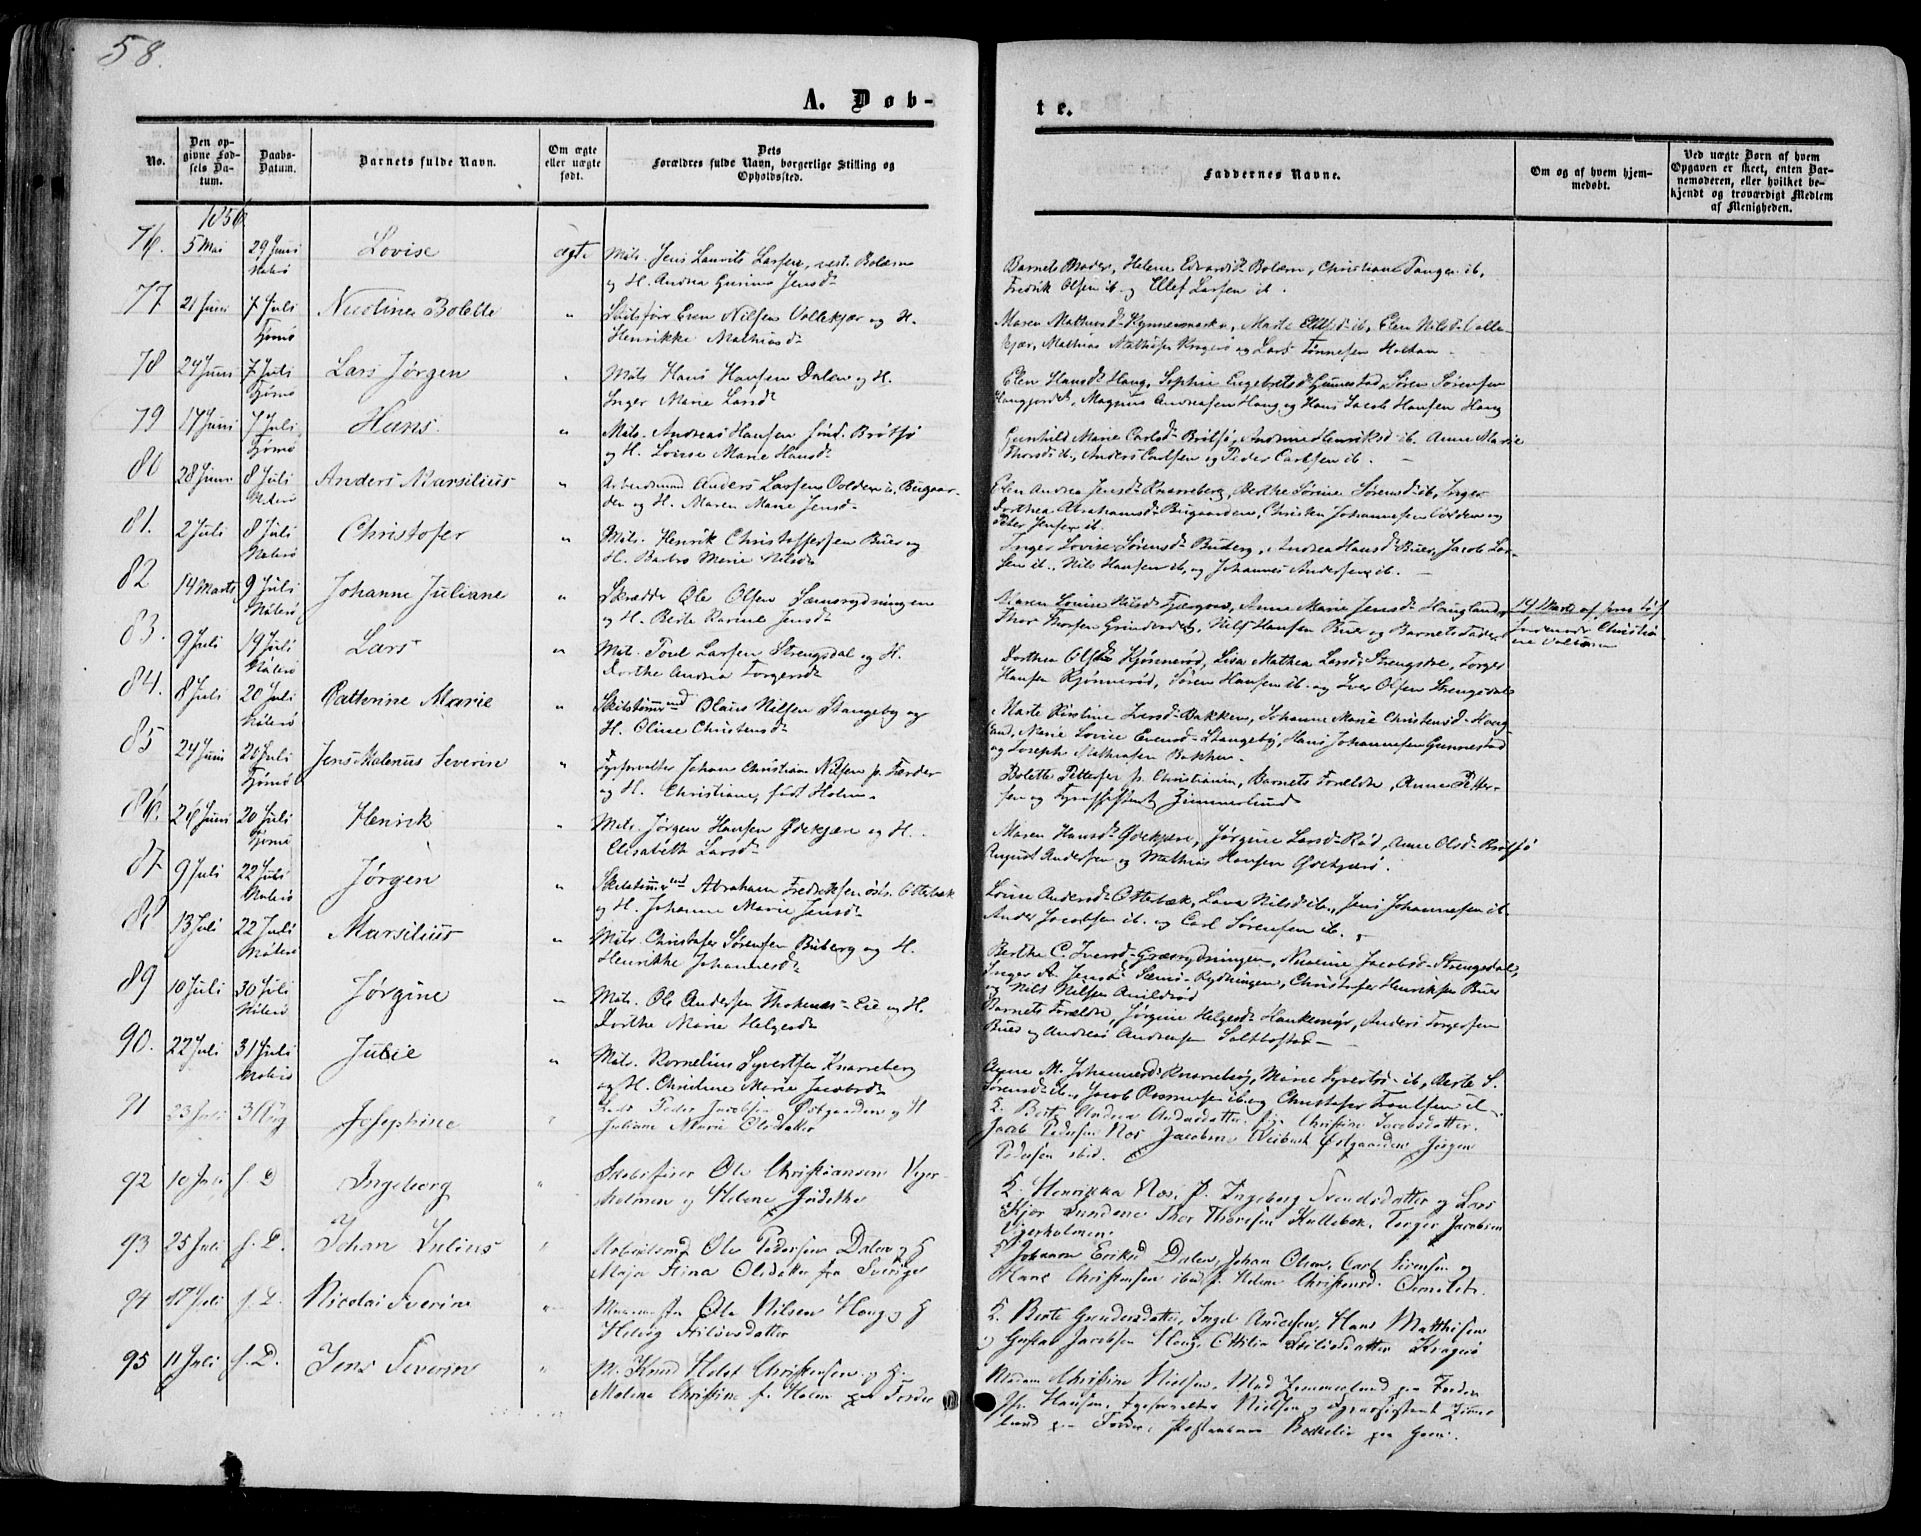 58.
A. Døb-
te.
No.
Den op-
givne Fød-
sels Da-
tum.
Daabs-
Datum.
Barnets fulde Navn.
Om ægte
eller uægte
født.
Dets
Forældres fulde Navn, borgerlige Stilling og
Opholdssted.
Faddernes Navne.
Om og af hvem hjem-
medøbt.
Ved uægte Born af hvem
Opgaven er skeet, enten Bar-
nemoderen, eller hvilket be-
kjendt og troværdigt Medlem
af Menigheden.
1856.
76. 5 Mai 29 Juni Lovise ægte Mats. Jens Laurits Larsen, vest. Bolærn
Nøterø og H. Andrea Gurine Jensdr
Barnets Moder, Helene Edvardsdr Bolærn, Christian Tangen ib,
Fredrik Olsen ib. og Ellef Larsen ib.
77 21 Juni 7 Juli Nicoline Bolette " Skibsfører Even Nilsen Vollekjær og H.
Tjømø Henrikke Mathiasdr
Maren Mathiasdr Hynnesmarken, Marte Ellefsdr ib, Elen Nilsdr Volle-
kjær, Mathias Mathisen Kragerø og Lars Tønnesen Holtan
78 24 Juni 7 Juli Lars Jørgen " Mats Hans Hansen Dalen og H.
Tjømø Inger Marie Larsdr
Elen Hansdr Haug, Sophie Engebretsdr Gunnestad, Søren Sørensen
Haugjordet, Magnus Andreasen Haug og Hans Jacob Hansen Haug
79 17 Juni 7 Juli Hans. " Mats. Andreas Hansen sønd. Brøtsø
Tjømø og H. Lovise Marie Hansdr
Gunhild Marie Carlsdr Brøtsø, Andrine Henriksdr ib. Anne Marie
Thorsdr ib., Anders Carlsen og Peder Carlsen ib.
80 28 Juni 8 Juli Anders Marsilius " Arbeidsmand Anders Larsen Oolden u. Bugaar-
Nøterø den og H. Maren Marie Jensdr
Elen Andrea Jensdr Knarreberg, Berthe Sørine Sørensdr ib, Inger
Dorthea Abrahamsdr Bugaarden, Christen Johannesen Oolden og
Peter Jensen ib.
81. 2 Juli 8 Juli Christofer " Mats. Henrik Christoffersen Buer og
Nøterø H. Barbro Marie Nilsdr
Inger Lovise Sørensdr Buberg, Andrea Hansdr Buer, Jacob Lar-
sen ib., Nils Hansen ib, og Johannes Andersen ib.
82 14 Marts 9 Juli Johanne Juliane " Skrædder Ole Olsen Sæmsrydningen
Nøterø og H. Berte Karine Jensdr
Maren Lovise Nilsdr Fjærgen, Anne Marie Jensdr Hauglands
Thor Thorsen Grindeveb, Nils Hansen Buer og Barnets Fader
14 Marts af
Christi
83. 9 Juli 19 Juli Lars " Mat. Poul Larsen Strengsdal og H.
Nøterø Dorthe Andrea Torgersdr
Dorthea Olsdr Kjønnerød, Lisa Mathea Larsdr Strengsdal, Torger
Hansen Kjønnerød, Søren Hansen ib. og Iver Olsen Strengsdal
84. 8 Juli 20 Juli Cathrine Marie " Skibstømrmd Olaus Nilsen Stangeby og
Nøterø H. Oline Christensdr
Marte Kirstine Larsdr Bakken, Johanne Marie Christensdr Haug-
land, Marie Lovise Evensdr Stangeby, Hans Johannesen Gunnestad
og Joseph Mathiasen Bakken
85 24 Juni 20 Juli Jens Malenus Severin " Fyrforvalter Johan Christian Nilsen p. Færder
Tjømø og H. Christiane, født Holm
Bolette Pettersen fr. Christiania, Barnets Forældre, Anne Petter-
sen og Fyrassistent Zimmerlund
86. 26 Juni 20 Juli Henrik " Mats. Jørgen Hansen Ødekjære og H.
Tjømø Elisabeth Larsdr
Maren Hansdr Ødekjære, Jørgine Larsdr Rød, Anne Olsdr Brøtsø
August Andersen og Mathias Hansen Ødekjære.
87 9 Juli 22 Juli Jørgen " Skibstømrmd Abraham Fredriksen østr. Ottebæk
Nøterø og H. Johanne Marie Jensdr
Lovise Andersdr Ottebæk, Lava Nilsdr ib., Jens Johannesen ib.
Anders Jacobsen ib. og Carl Sørensen ib.
88 13 Juli 22 Juli Marsilius " Mats. Christofer Sørensen Buberg og H.
Nøterø Henrikke Johannesdr
Berthe C. Iversdr Græsrydningen, Nicoline Jacobsdr Strengsdal,
Inger A. Jensdr Sæms-Rydningen, Christofer Henriksen Buer
og Nils Nilsen Arildsrød
89 10 Juli 30 Juli Jørgine " Mats. Ole Andersen Thokenæs-Eie og H.
Nøterø Dorthe Marie Helgesdr
Barnets Forældre, Jørgine Helgesdr Haukemyr, Anders Torgersen
Buer og Andreas Andresen Saltbostad
90. 22 Juli 31 Juli Julie " Mats. Kornelius Syvertsen Knarreberg
Nøterø og H. Christine Marie Jacobsdr
Anne M. Johannesdr Knarreberg, Marie Syvertsdr ib, Berte S.
Sørensdr ib, Jacob Rasmussen ib. og Christofer Poulsen ib.
91 23 Juli 3 Aug Josephine " Lods Peder Jacobsen Østgaarden og H
Juliane Marie Olsdatter
K. Berte Andrea Andersdatter, Pige Christine Jacobsdatter.
Jacob Pedersen Næs, Jacobine Østgaarden, Jørgen
Pedersen ibid.
92 10 Juli s. D Ingeborg " Skibsfører Ole Christiansen Vejer-
holmen og Helene Judithe
K. Henrikka Næs, p. Ingeborg Svendsdatter og Lars
Kjær Sundene Thor Thoresen Kullebok, Torger Jacobsen
Vejerholmen.
93 25 Juli s. D. Johan Julius " Arbeidsmd Ole Pedersen Dalen og H
Maja Stina Olsdatter fra Sverige
K Johanne Eriksd Dalen, Johan Olsen, Carl Sørensen og
Hans Christensen ibid, p. Helene Christensd. Ormelet.
94 17 Juli s. D. Nicolai Severin " Ole Nilsen Haug og H
Helvig Nilsdatter
K. Berte Gundersdatter, Inger Andersen, Hans Matthisen
og Gustav Jacobsen Haug, Ottilia Nilsdatter Kragerø
95 11 Juli s. D. Jens Severin " M. Knud Holst Christensen og H.
Malene Christine f. Holm paa Færder
Madam Christine Nielsen, Mad Zimmerlund paa Færder
Hansen, Fyrforvalter Nielsen og Fyrassistent Zimmer-
lund paa Færder,